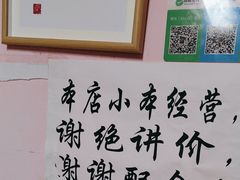 本店小本经营，
谢绝讲价，
谢谢配合